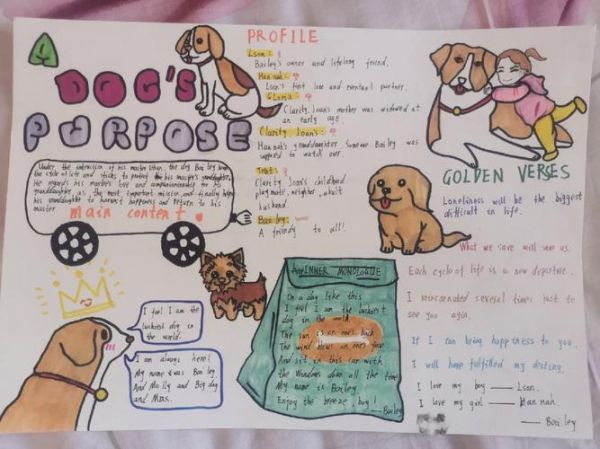 A
DOG'S
PURPOSE
Under the intermission of his master Ethan, the dog Bailey
the cycle of life and sticks to protect his master's granddaughter.
He regards his master's love and companionship for his
granddaughter as the most important mission, and finally helps
his granddaughter to harvest happiness and return to his
master.
main content
PROFILE
Bailey's owner and lifelong friend.
Hannah:
first love and eventual partner.
Gloria:
Clarity Joan's mother was widowed at
an early age
Clarity Joan's:
Hannah's granddaughter, someone Bailey was
supposed to watch over.
Trent:
Clarity Joan's childhood
playmate, neighbor, adult
husband.
Bailey:
A friendly to all!
GOLDEN VERSES
Loneliness will be the biggest
difficult in life.
What we save will save us.
Each cycle of life is a new departure.
I reincarnated several times just to
see you again.
If I can bring happiness to you.
I will have fulfilled my destiny.
I love my boy ——
I love my girl —— Hannah.
—— Bailey
I feel I am the
luckiest dog in
the world.
I am always here!
My name was Bailey.
And Molly and Big dog
and Max.
INNER MONOLOGUE
On a day like this
I feel I am the luckiest
dog in the world
The sun is on one's back
The wind blows on one's face
And sit in this car with
the windows down all the time
My name is Bailey
Enjoy the breeze, boy!
—— Bailey